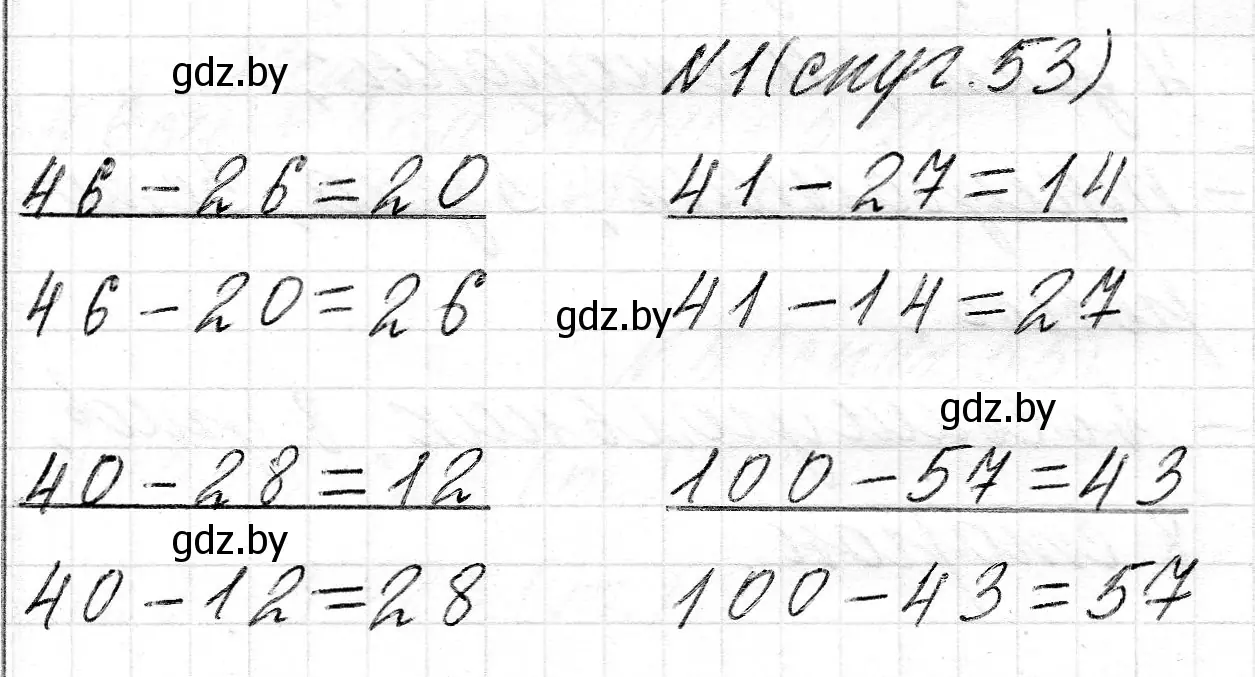 gdz.by
№1(спуг.53)
46-26=20
41-27=14
46-20=26
gdz.by
41-14=27
gdz.by
40-28=12
100-57=43
gdz.by
40-12=28
100-43=57